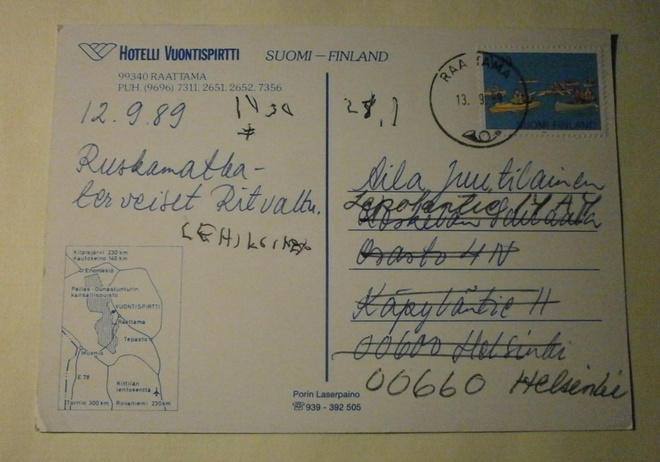 HOTELLI VUONTISPIRTTI SUOMI – FINLAND
99340 RAATTAMA
PUH. (9696) 7311, 2651, 2652, 7356
12.9.89
Ruskamatka-
terveiset Ritvalta.
Kilpisjärvi 230 km
Kautokeino 140 km
Enontekiö
Pallas-Ounastunturin
kansallispuisto
VUONTISPIRTTI
Raattama
Tepasto
Muonio
E 78
Kittilän
lentokenttä
Tornio 300 km
Rovaniemi 230 km
Porin Laserpaino
☏ 939 - 392 505
RAATTAMA
13. 9.
SUOMI FINLAND
Aila Juutilainen
Osasto 4N
Käpyläntie 11
00600 Helsinki
00660 Helsinki